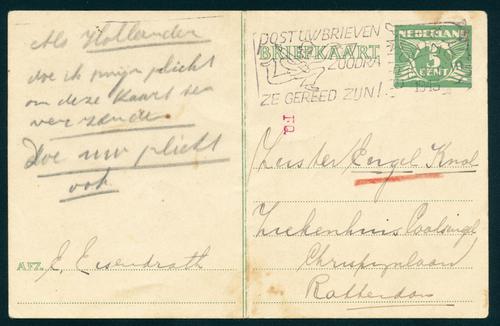 Als Hollander
doe ik mijn plicht
om deze kaart te
verzende
Doe uw plicht
ook
AFZ. E. Eisendrath
POST UW BRIEVEN
ZOODRA
ZE GEREED ZIJN!
BRIEFKAART
NEDERLAND
5
CENT
FQ
Zuster Engel Knol
Ziekenhuis Coolsingel
Rotterdam